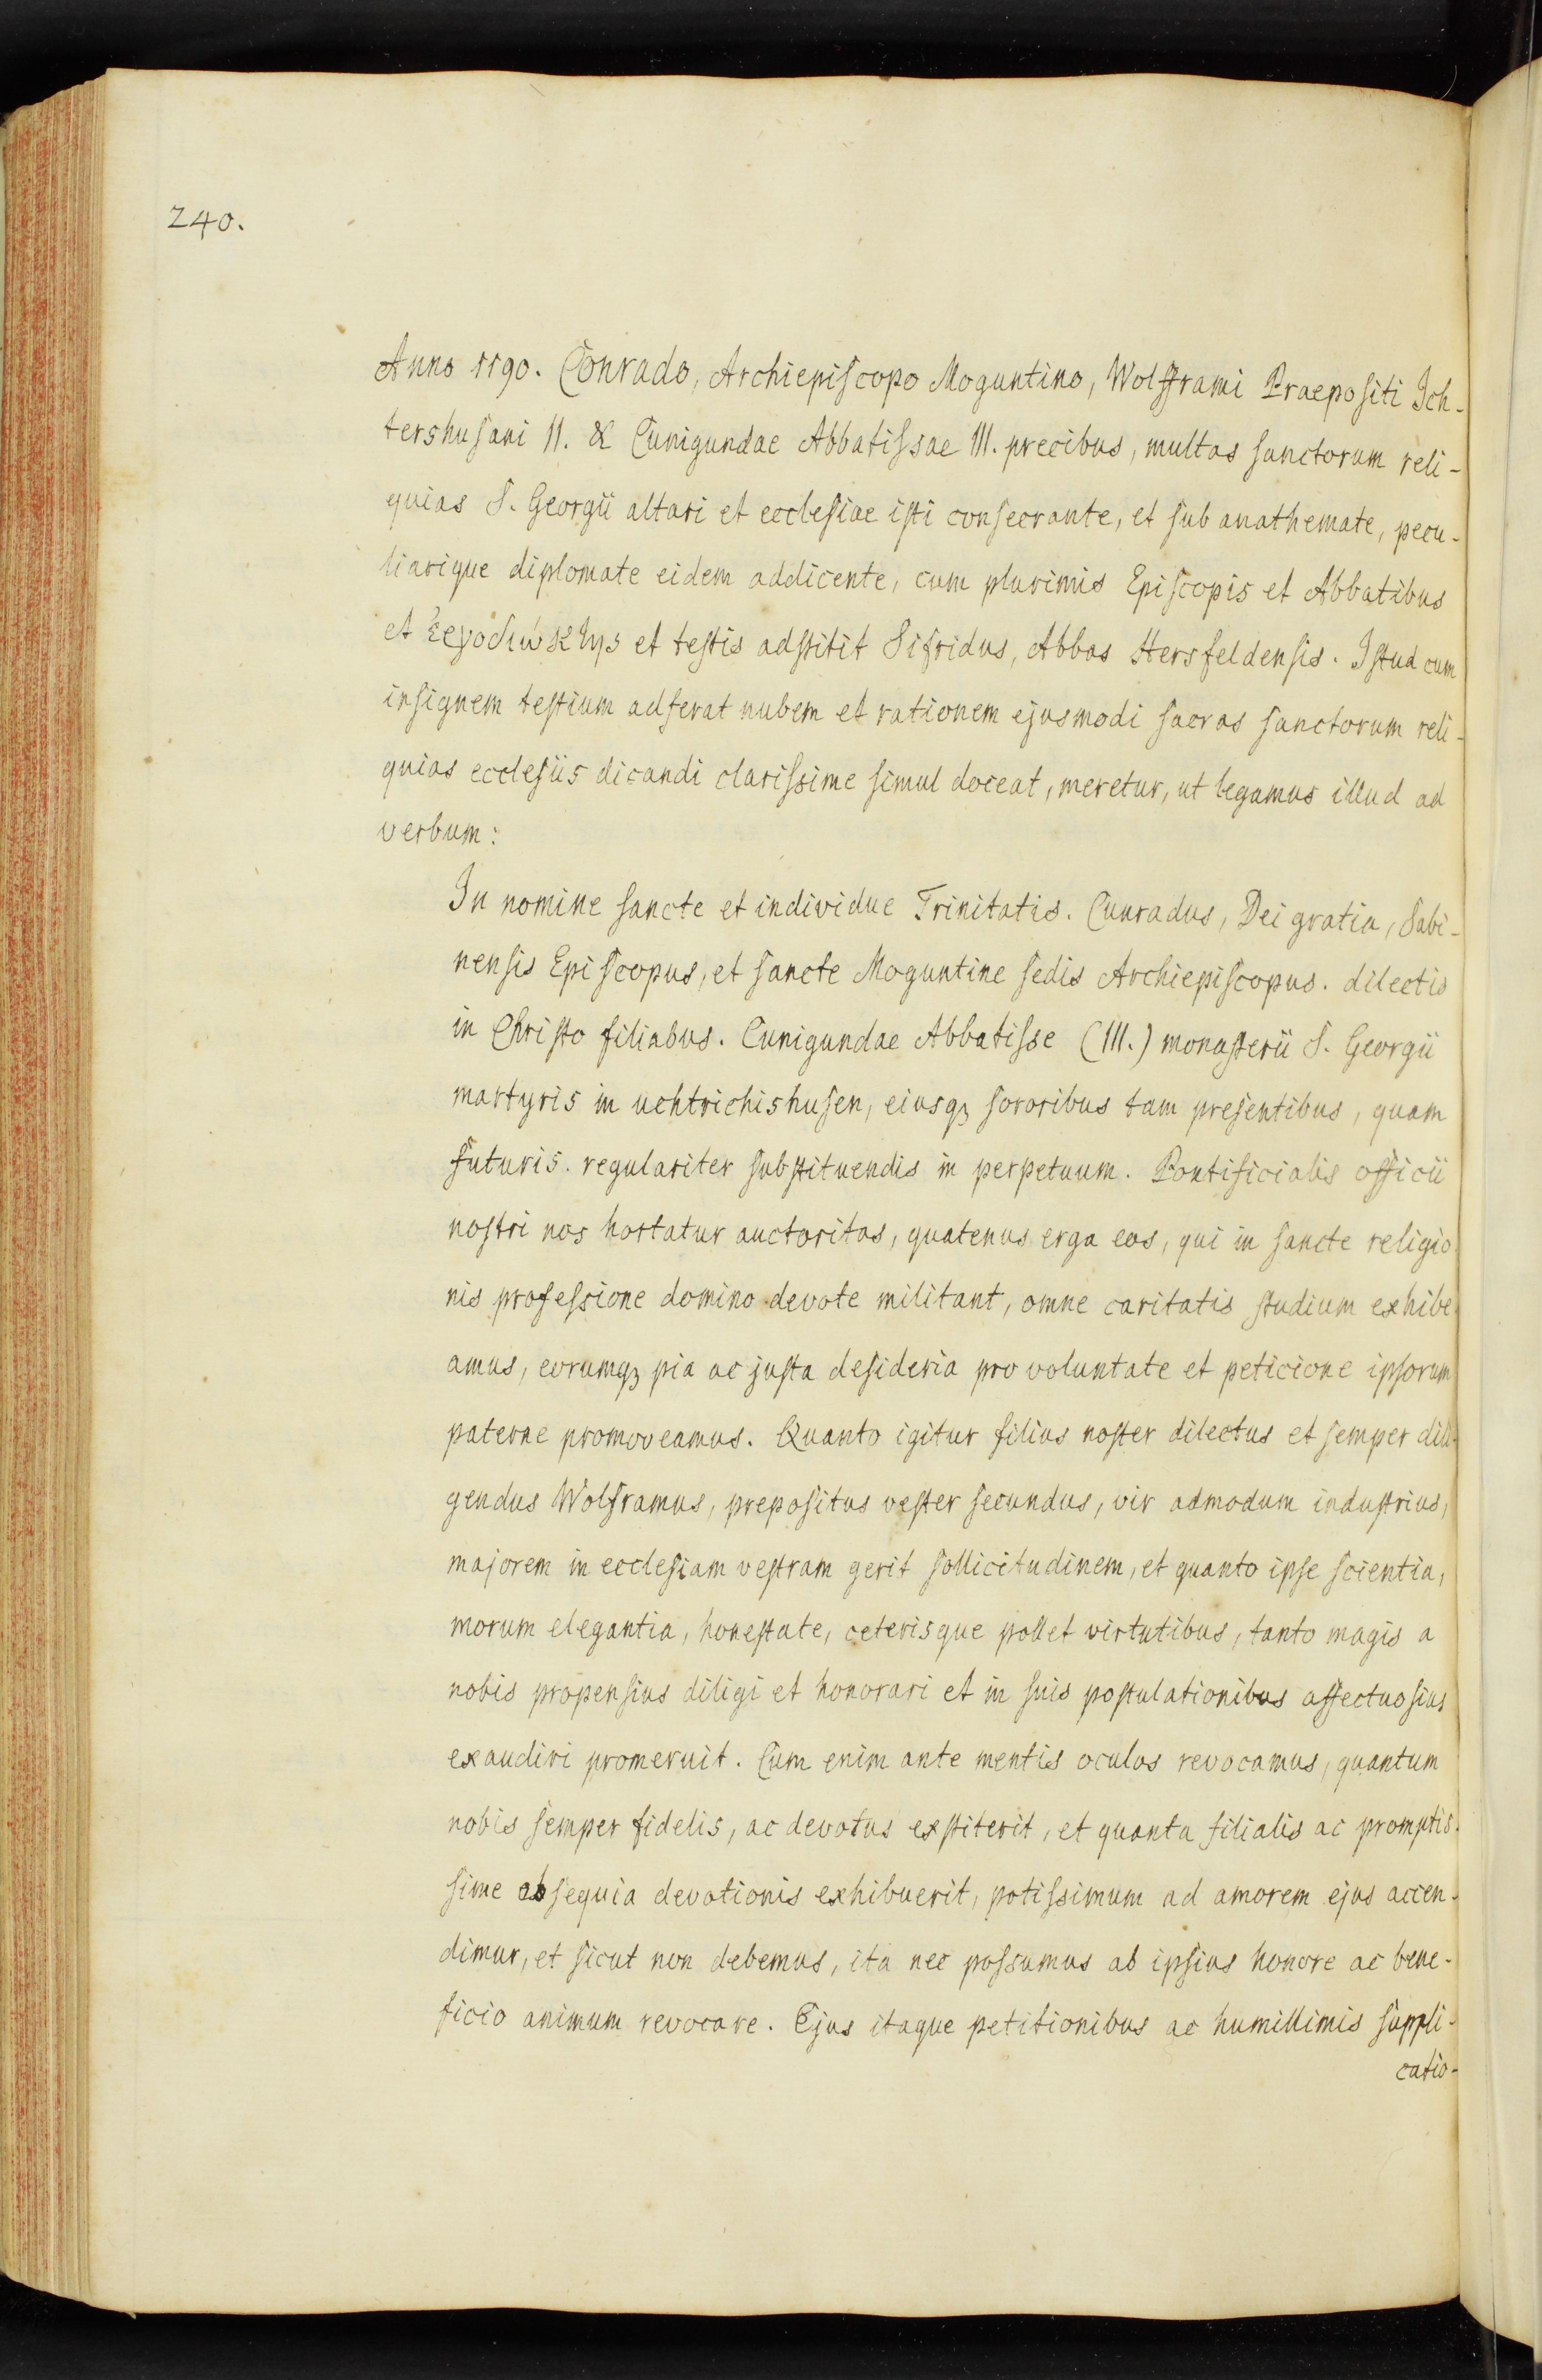 240.
Anno 1190. Conrado, Archiepiscopo Moguntino, Wolfframi Praepositi Ich-
tershusani II. & Cunigundae Abbatissae III. precibus, multas sanctorum reli-
quias S. Georgii altari et ecclesiae isti consecrante, et sub anathemate, pecu-
liarique diplomate eidem addicente, cum plurimis Episcopis et Abbatibus
et et testis adstitit Sifridus, Abbas Hersfeldensis. Istud cum
insignem testium adferat nubem et rationem ejusmodi sacras sanctorum reli-
quias ecclesiis dicandi clarissime simul doceat, meretur, ut legamus illud ad
verbum:
In nomine sancte et individue Trinitatis. Cunradus, Dei gratia, Sabi-
nensis Episcopus, et sancte Moguntine sedis Archiepiscopus. dilectis
in Christo filiabus. Cunigundae Abbatisse (III.) monasterii S. Georgii
martyris in uchtrichishusen, eiusqz sororibus tam presentibus, quam
futuris. regulariter substituendis in perpetuum. Pontificialis officii
nostri nos hortatur auctoritas, quatenus erga eos, qui in sancte religio-
nis professione domino devote militant, omne caritatis studium exhibe-
amus, eorumqz pia ac justa desideria pro voluntate et peticione ipsorum
paterne promoveamus. Quanto igitur filius noster dilectus et semper dili-
gendus Wolframus, prepositus vester secundus, vir admodum industrius,
majorem in ecclesiam vestram gerit sollicitudinem, et quanto ipse scientia,
morum elegantia, honestate, ceterisque pollet virtutibus, tanto magis a
nobis propensius diligi et honorari et in suis postulationibus affectuosius
exaudiri promeruit. Cum enim ante mentis oculos revocamus, quantum
nobis semper fidelis, ac devotus exstiterit, et quanta filialis ac promptis-
sime obsequia devotionis exhibuerit, potissimum ad amorem ejus accen-
dimur, et sicut non debemus, ita nec possumus ab ipsius honore ac bene-
ficio animum revocare. Ejus itaque petitionibus ac humillimis suppli-
catio-